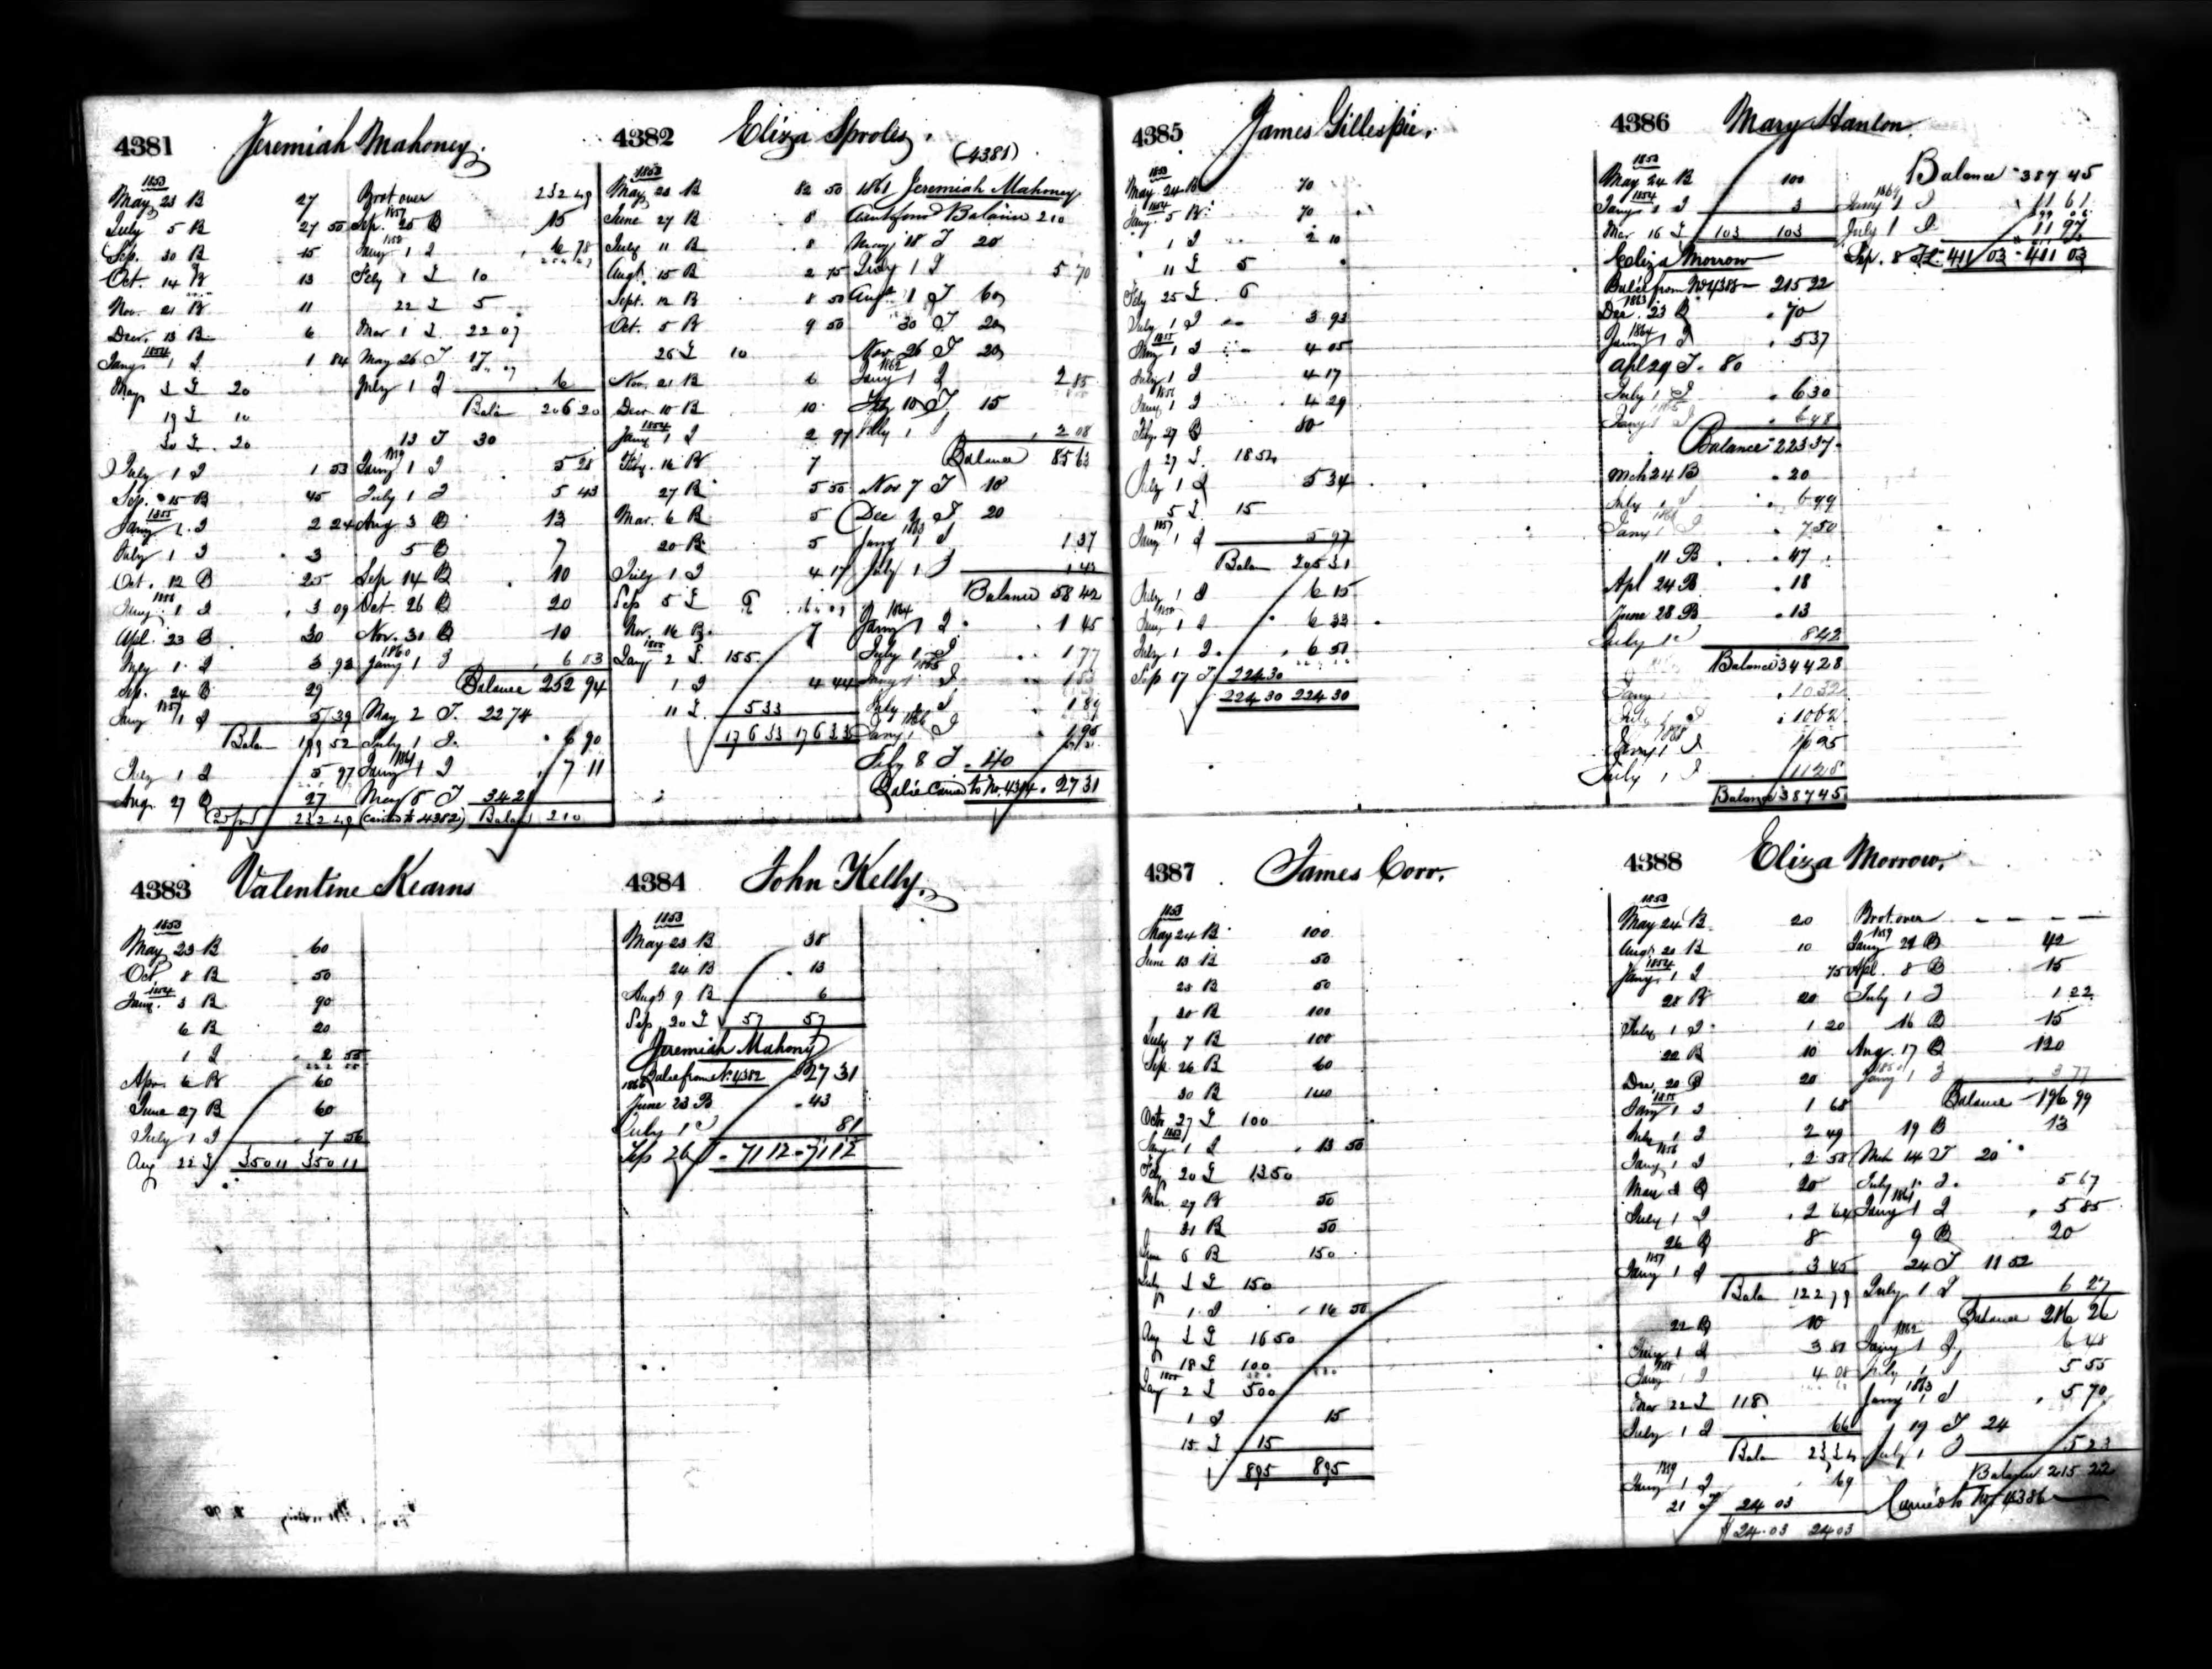 4381 Jeremiah Mahoney.
1853
May 23 B 27
July 5 B 27 50
Sep. 30 B 15
Oct. 14 B 13
Nov. 21 B 11
Decr. 13 B 6
1854
Jany 1 I 1 84
May 3 I 20
19 I 10
30 I 20
July 1 I 1 53
Sep. 15 B 45
1855
Jany 1 I 2 24
July 1 I 3
Oct. 12 B 25
1856
Jany 1 I 3 09
Apl. 23 B 30
July 1 I 3 93
Sep. 24 B 29
1857
Jany 1 I 5 39
Balan 199 52
July 1 I 5 97
Aug. 27 B 27
232 49
Brot over 232 49
1857
Sep. 20 B 15
1858
Jany 1 I 6 78
Feby 1 I 10
22 I 5
Mar 1 I 22 07
May 26 I 17
July 1 I 6
Balan 206 20
13 I 30
1859
Jany 1 I 5 28
July 1 I 5 43
Aug 3 B 13
5 B 7
Sep 14 B 10
Oct. 26 B 20
Nov. 31 B 10
1860
Jany 1 I 6 03
Balance 252 94
May 2 I 22 74
July 1 I 6 90
1861
Jany 1 I 7 11
May 8 I 34 21
(carried to 4382) Balan 210
4382 Eliza Sproles.
(4381)
1853
May 23 B 82 50
June 27 B 8
July 11 B 8
Augt. 15 B 2 75
Sept. 12 B 8 50
Oct. 5 B 9 50
26 I 10
Nov. 21 B 6
Decr 10 B 10
1854
Jany 1 I 2 97
Feby. 16 B 7
27 B 5 50
Mar. 6 B 5
20 B 5
July 1 I 4 17
Sep 5 I 9
Nov. 16 B 7
1855
Jany 2 I 155
1 I 4 44
11 I 5 33
176 33 176 33
1861 Jeremiah Mahoney
Balance 210
May 18 I 20
July 1 I 5 70
Augt 1 I 60
30 I 20
Nov 26 I 20
1862
Jany 1 I 2 85
Feby 10 I 15
July 1 I 2 08
Balance 85 63
Nov 7 I 10
Dec 1 I 20
1863
Jany 1 I 1 37
July 1 I 1 42
Balance 58 42
1864
Jany 1 I 1 45
July 1 I 1 77
1865
Jany 1 I 1 83
July 1 I 1 89
1866
Jany 1 I 1 95
Feby 8 I 40
Balce Carried to No. 4384 27 31
4383 Valentine Kearns
1853
May 23 B 60
Oct 8 B 50
1854
Jany. 3 B 90
6 B 20
1 I 2 55
Apr. 6 B 60
June 27 B 60
July 1 I 7 56
Aug 22 I 350 11 350 11
4384 John Kelly.
1853
May 23 B 38
24 B 13
Augt 9 B 6
Sep 20 I 57 57
Jeremiah Mahony
1866 Balce from No. 4382 27 31
June 23 B 43
July 1 I 81
Sep 26 I 71 12 71 12
4385 James Gillespie.
1853
May 24 B 70
1854
Jany. 5 B 70
1 I 2 10
11 I 5
Feby 25 I 6
July 1 I 3 93
1855
Jany 1 I 4 05
July 1 I 4 17
1856
Jany 1 I 4 29
Feby. 27 B 80
27 I 18 54
July 1 I 5 34
5 I 15
1857
Jany 1 I 5 97
Balan 205 31
July 1 I 6 15
1858
Jany 1 I 6 33
July 1 I 6 51
Sep 17 I 224 30
224 30 224 30
4386 Mary Hanlon
1853
May 24 B 100
1854
Jany 1 I 3
Mar 16 I 103 103
Eliza Morrow
Balce from No 4388 215 22
1863
Dec. 23 B 70
1864
Jany 1 I 5 37
Apl 29 I 80
July 1 I 6 30
1865
Jany 1 I 6 48
Balance 223 37
Mch 24 B 20
July 1 I 6 99
1866
Jany 1 I 7 50
11 B 47
Apl 24 B 18
June 28 B 13
July 1 I 8 42
Balance 344 28
Jany 10 32
July 1 I 10 62
1868
Jany 1 I 10 95
July 1 I 11 28
Balance 387 45
Balance 387 45
1869
Jany 1 I 11 61
July 1 I 11 97
Sep. 8 I 411 03 411 03
4387 James Corr.
1853
May 24 B 100
June 13 B 50
23 B 50
30 B 100
July 7 B 100
Sep. 26 B 60
30 B 140
Octr 27 I 100
Jany 1 I 13 50
Feby 20 I 13 50
Mar. 27 B 50
31 B 50
June 6 B 150
July 3 I 150
1 I 16 50
Aug 3 I 16 50
18 I 100
1855
Jany 2 I 500
1 I 15
15 I 15
895 895
4388 Eliza Morrow.
1853
May 24 B 20
Augt. 20 B 10
1854
Jany. 1 I 75
28 B 20
July 1 I 1 20
22 B 10
Dec. 20 B 20
1855
Jany 1 I 1 68
July 1 I 2 49
1856
Jany 1 I 2 58
Mar 3 B 20
July 1 I 2 64
26 B 8
1857
Jany 1 I 3 45
Balan 122 79
22 B 10
July 1 I 3 81
1858
Jany 1 I 4 08
Mar 22 I 118
July 1 I 66
Balan 23 34
1859
Jany 1 I 69
21 I 24 03
24 03 24 03
Brot over
1859
Jany 21 B 42
Apl. 8 B 15
July 1 I 1 22
16 B 15
Aug. 17 B 120
Jany 1 I 3 77
Balance 196 99
19 B 13
Mch 14 I 20
July 1 I 5 67
1861
Jany 1 I 5 85
9 B 20
24 I 11 52
July 1 I 6 27
Balance 216 26
1862
Jany 1 I 6 48
July 1 I 5 55
1863
Jany 1 I 5 70
19 I 24
July 1 I 5 23
Balance 215 22
Carried to No 4386